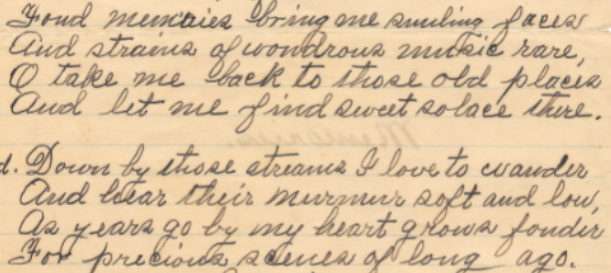 Fond memories bring me smiling faces
And strains of wondrous music rare,
O take me back to those old places
And let me find sweet solace there.
d. Down by those streams I love to wander
And hear their murmur soft and low,
As years go by my heart grows fonder
For precious scenes of long ago.